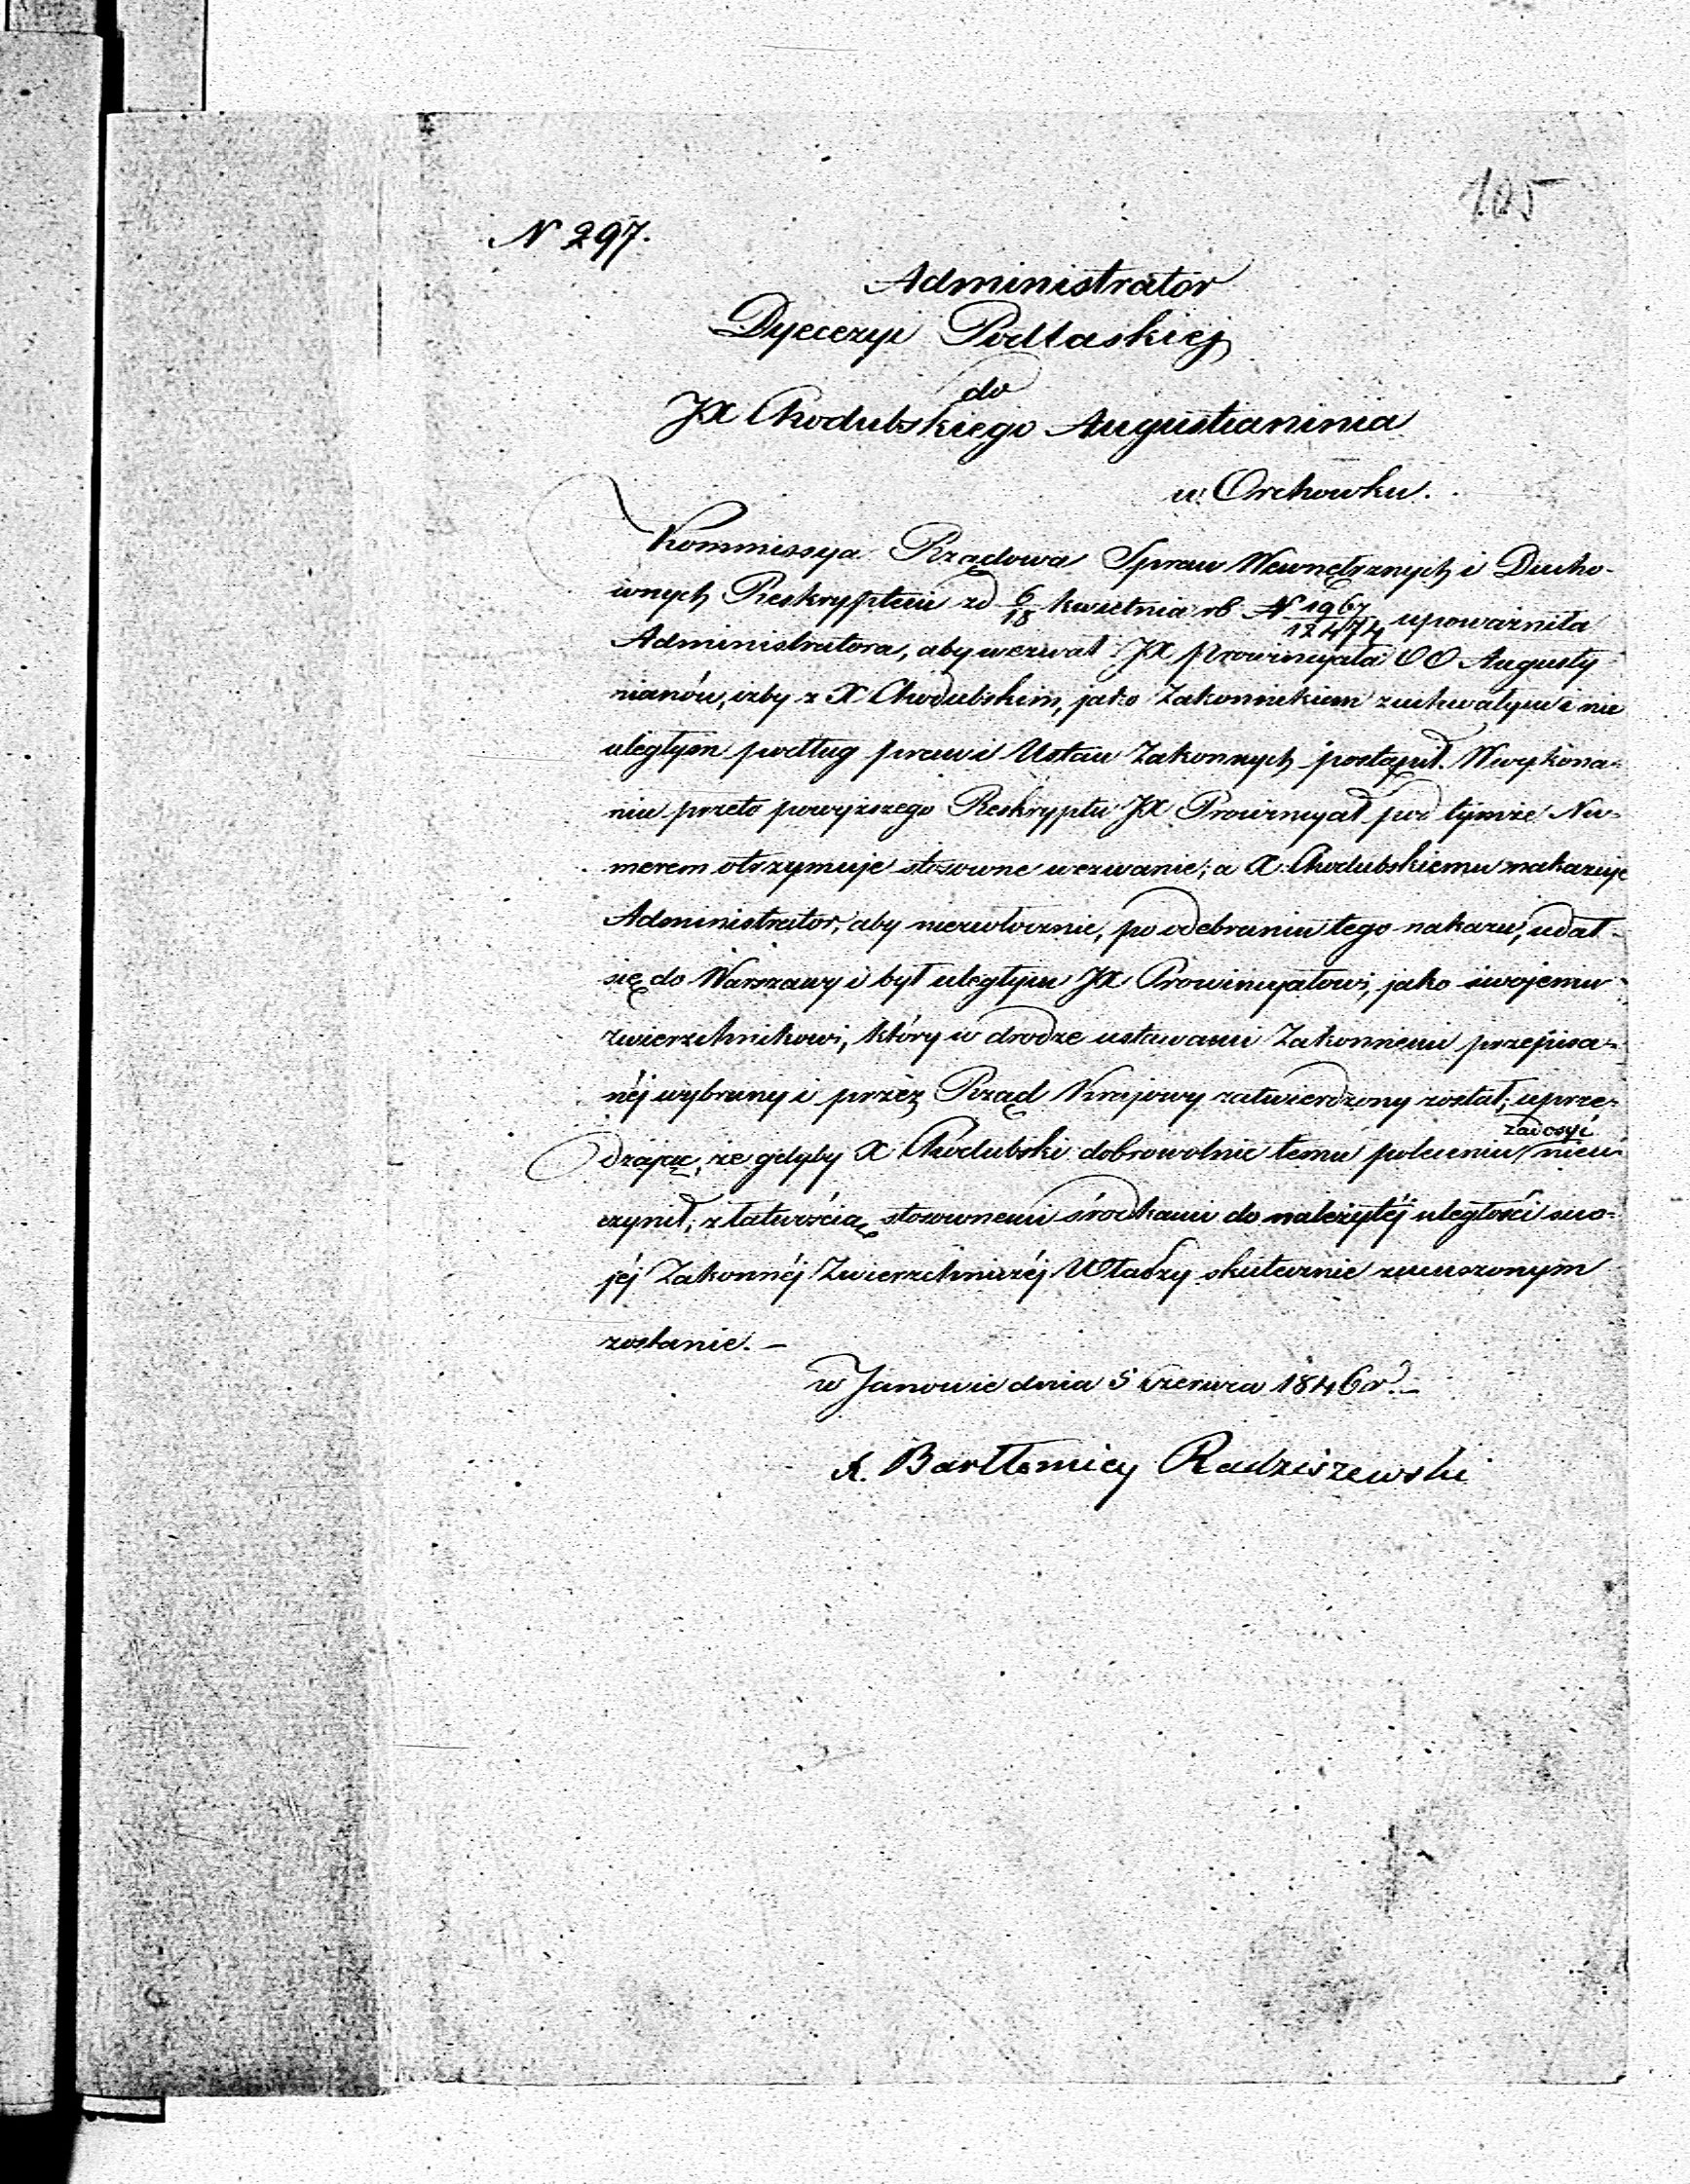 105
N 297.
Administrator
Dyecezyi Podlaskiej
do
JX Chodubskiego Augustianina
w Orchowku.
Kommissya Rządowa Spraw Wewnętrznych i Ducho-
wnych Reskryptem zd 6/18 kwietnia rb N 1967/12474 upoważniła
Administratora, aby wezwał JX Prowincyała OO Augusty
nianów, iżby z X Chodubskim, jako Zakonnikiem zuchwałym i nie
uległym podług praw i Ustaw Zakonnych postąpił. W wykona-
niu przeto powyższego Reskryptu JX Prowincyał pod tymże Nu-
merem otrzymuje stosowne wezwanie; a X. Chodubskiemu nakazuje
Administrator, aby niezwłocznie, po odebraniu tego nakazu, udał
się do Warszawy i był uległym JX Prowincyałowi, jako swojemu
zwierzchnikowi, który w drodze ustawami Zakonnemi przepisa-
néj wybrany i przez Rząd Krajowy zatwierdzony został; uprze-
zadosyć
dzając, że gdyby X Chodubski dobrowolnie temu poleceniu nieu-
czynił, z łatwością stosownemi środkami do należytéj uległości swo-
jéj Zakonnéj Zwierzchniczéj Władzy skutecznie zmuszonym
zostanie. -
w Janowie dnia 5 Czerwca 1846 r. -
X. Bartłomiey Radziszewski